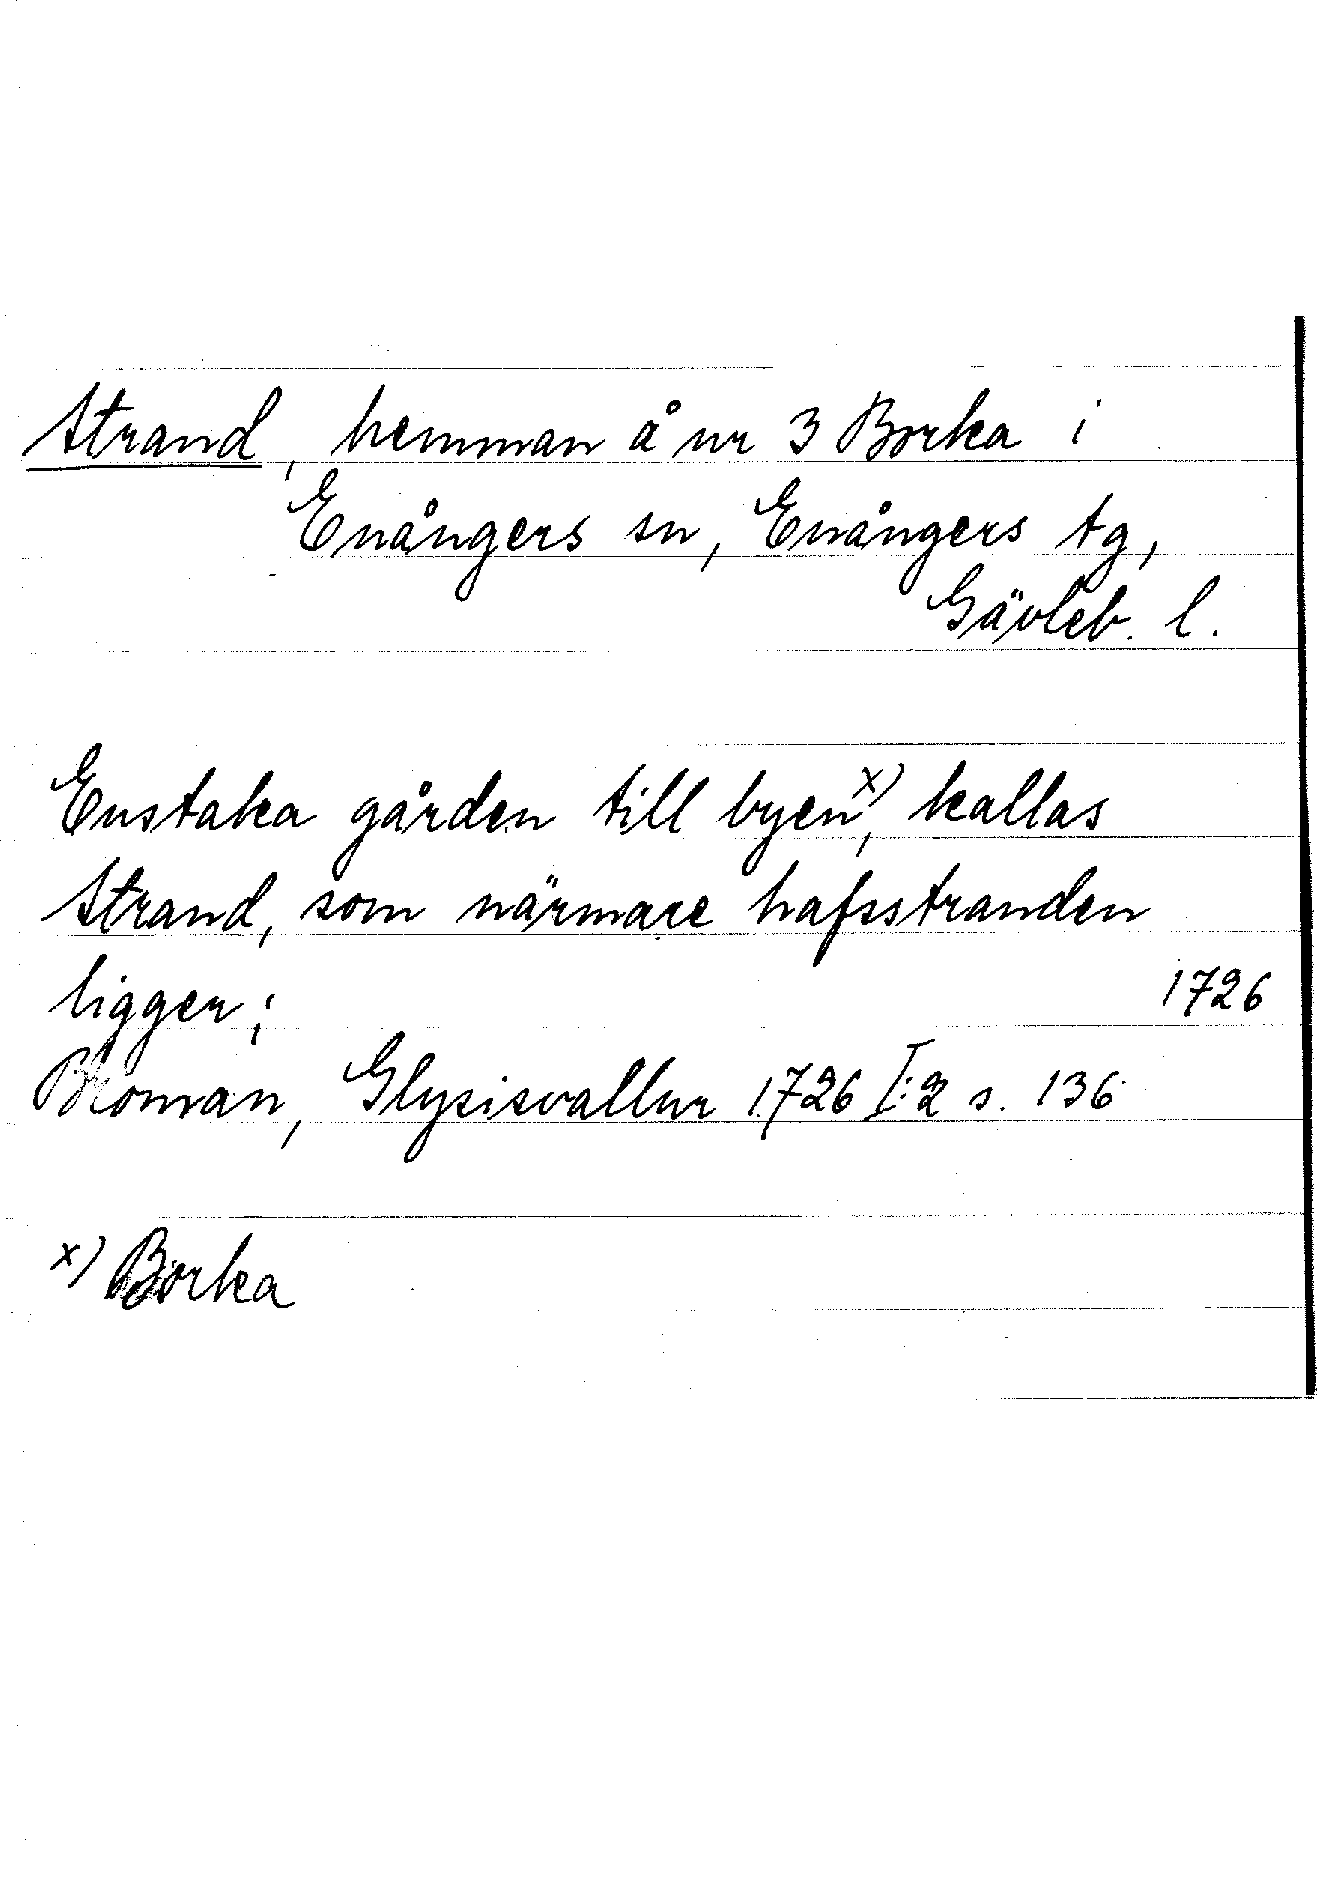 Strand, hemman å nr 3 Borka i
Enångers sn, Enångers tg,
Gävleb. l.
Enstaka gården till byen x), kallas
Strand, som närmare hafsstranden
ligger;
1726
Broman, Glysisvallur 1726 I:2 s. 136
x) Borka